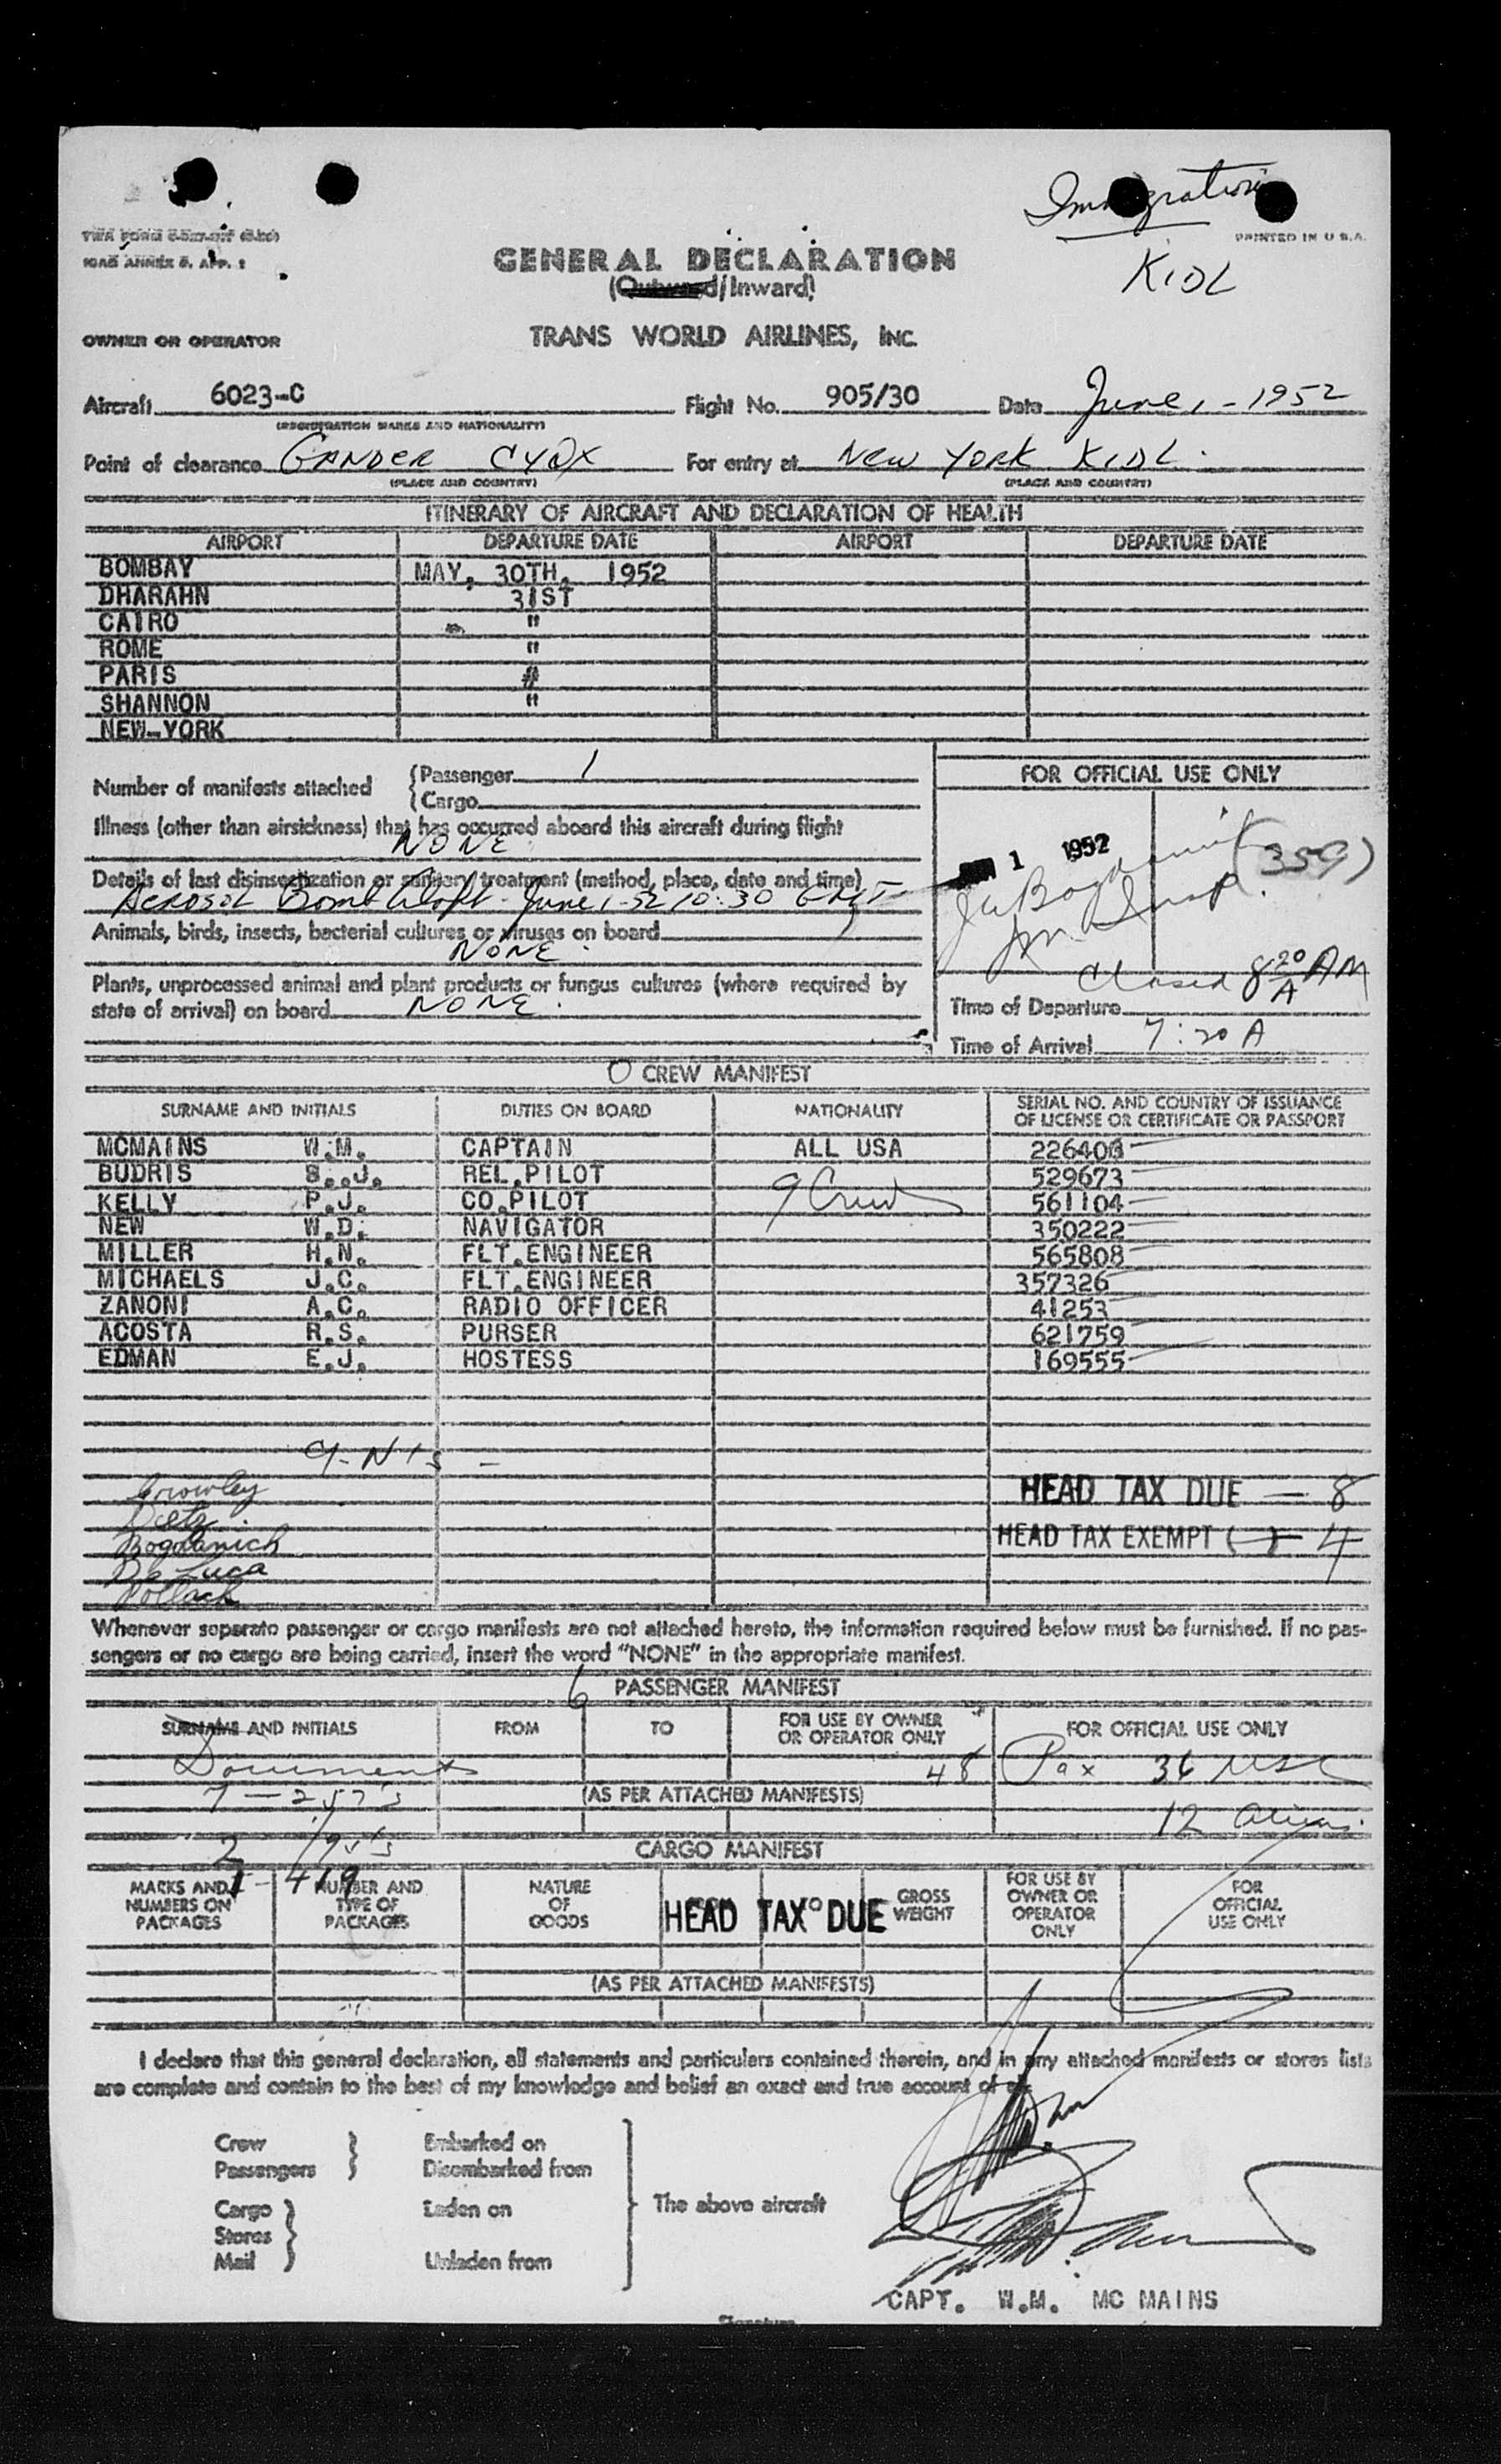 Immigration
PRINTED IN U.S.A.
ICAO ANNEX 9, APP. 1
KIDL
GENERAL DECLARATION
(Outward/Inward)
OWNER OR OPERATOR TRANS WORLD AIRLINES, INC.
Aircraft 6023-C Flight No. 905/30 Date June 1-1952
(REGISTRATION MARKS AND NATIONALITY)
Point of clearance GANDER CYQX For entry at NEW YORK KIDL
(PLACE AND COUNTRY) (PLACE AND COUNTRY)
ITINERARY OF AIRCRAFT AND DECLARATION OF HEALTH
AIRPORT DEPARTURE DATE AIRPORT DEPARTURE DATE
BOMBAY MAY, 30TH, 1952
DHARAHN 31ST
CAIRO "
ROME "
PARIS "
SHANNON "
NEW-YORK
Number of manifests attached {Passenger 1
{Cargo
FOR OFFICIAL USE ONLY
Illness (other than airsickness) that has occurred aboard this aircraft during flight
NONE
1 1952
(359)
Details of last disinsectization or sanitary treatment (method, place, date and time)
Aerosol Bomb Aloft - June 1-52 10:30 GMT
Animals, birds, insects, bacterial cultures or viruses on board
NONE
Plants, unprocessed animal and plant products or fungus cultures (where required by
state of arrival) on board NONE
Closed 8 20 A AM
Time of Departure
Time of Arrival 7:20 A
CREW MANIFEST
SURNAME AND INITIALS DUTIES ON BOARD NATIONALITY SERIAL NO. AND COUNTRY OF ISSUANCE
OF LICENSE OR CERTIFICATE OR PASSPORT
MCMAINS W.M. CAPTAIN ALL USA 226403
BUDRIS S..J. REL.PILOT 529673
KELLY P.J. CO.PILOT 9 Crew 561104
NEW W.D. NAVIGATOR 350222
MILLER H.N. FLT.ENGINEER 565808
MICHAELS J.C. FLT.ENGINEER 357326
ZANONI A.C. RADIO OFFICER 41253
ACOSTA R.S. PURSER 621759
EDMAN E.J. HOSTESS 169555
Crowley
HEAD TAX DUE — 8
Dietz
HEAD TAX EXEMPT ( ) 4
Bogdanich
De Luca
Pollack
Whenever separate passenger or cargo manifests are not attached hereto, the information required below must be furnished. If no pas-
sengers or no cargo are being carried, insert the word "NONE" in the appropriate manifest.
6 PASSENGER MANIFEST
SURNAME AND INITIALS FROM TO FOR USE BY OWNER
OR OPERATOR ONLY FOR OFFICIAL USE ONLY
Documents 48 Pax 36 USC
7 - 257's (AS PER ATTACHED MANIFESTS)
12 Aliens
2
CARGO MANIFEST
1 - 419
MARKS AND
NUMBERS ON
PACKAGES NUMBER AND
TYPE OF
PACKAGES NATURE
OF
GOODS HEAD TAX DUE GROSS
WEIGHT FOR USE BY
OWNER OR
OPERATOR
ONLY FOR
OFFICIAL
USE ONLY
(AS PER ATTACHED MANIFESTS)
I declare that this general declaration, all statements and particulars contained therein, and in any attached manifests or stores lists
are complete and contain to the best of my knowledge and belief an exact and true account of all
Crew } Embarked on
Passengers } Disembarked from
Cargo } Laden on The above aircraft
Stores }
Mail } Unladen from
CAPT. W.M. MC MAINS
Signature